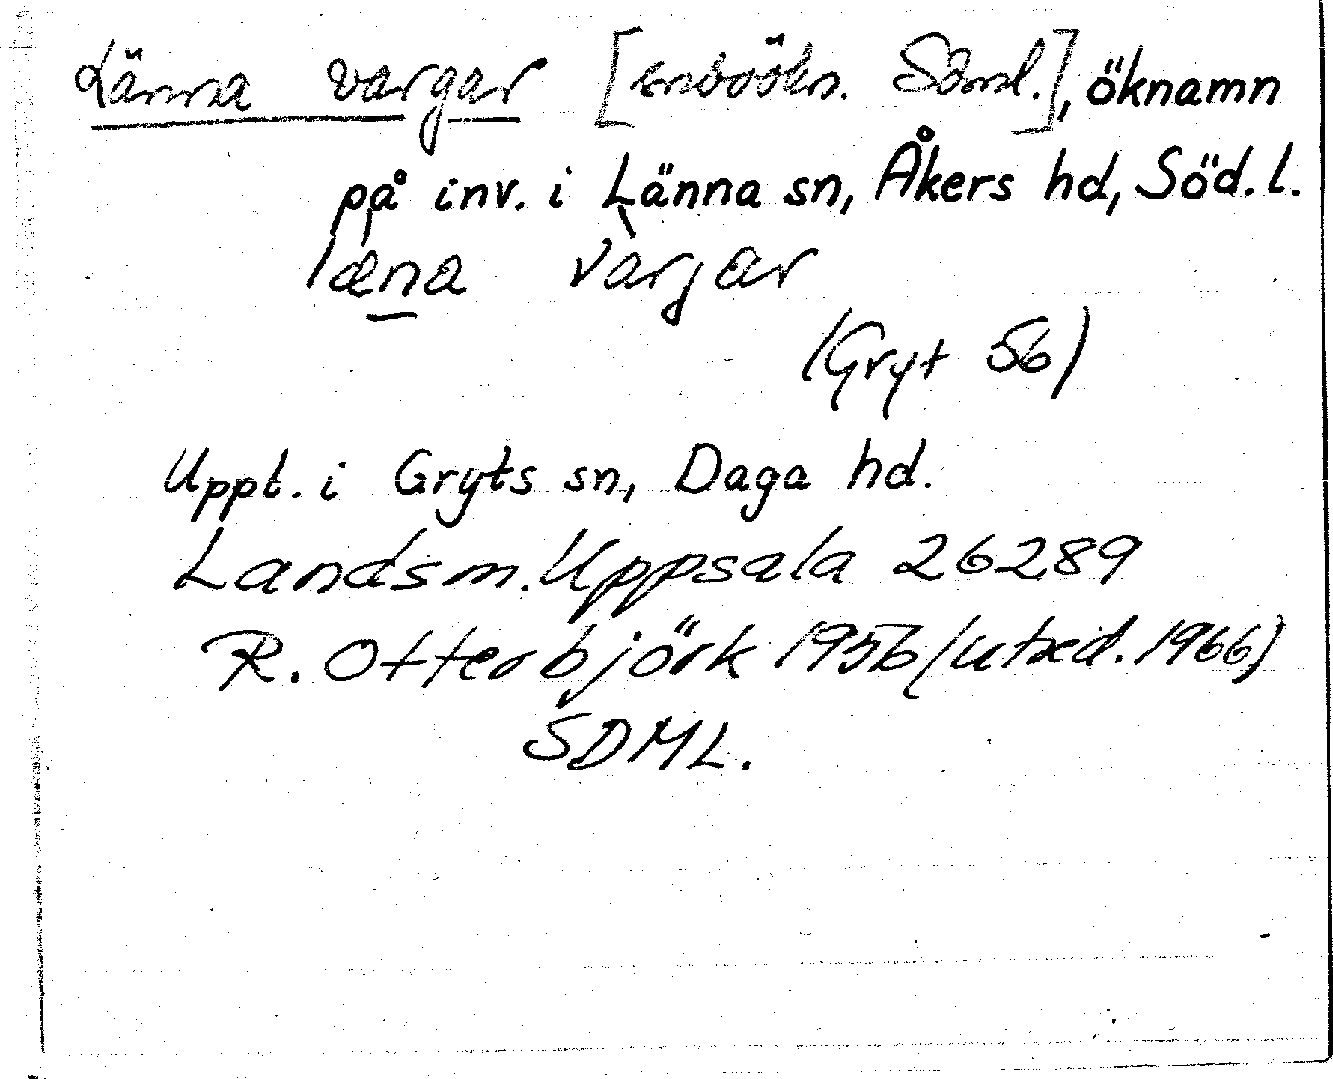 Länna vargar [inböökn. Söml.], öknamn
på inv. i Länna sn, Åkers hd, Söd. l.
læna vàrgar
(Gryt 56)
Uppt. i Gryts sn, Daga hd.
Landsm. Uppsala 26289
R. Otterbjörk 1956 (utred. 1966)
SDML.